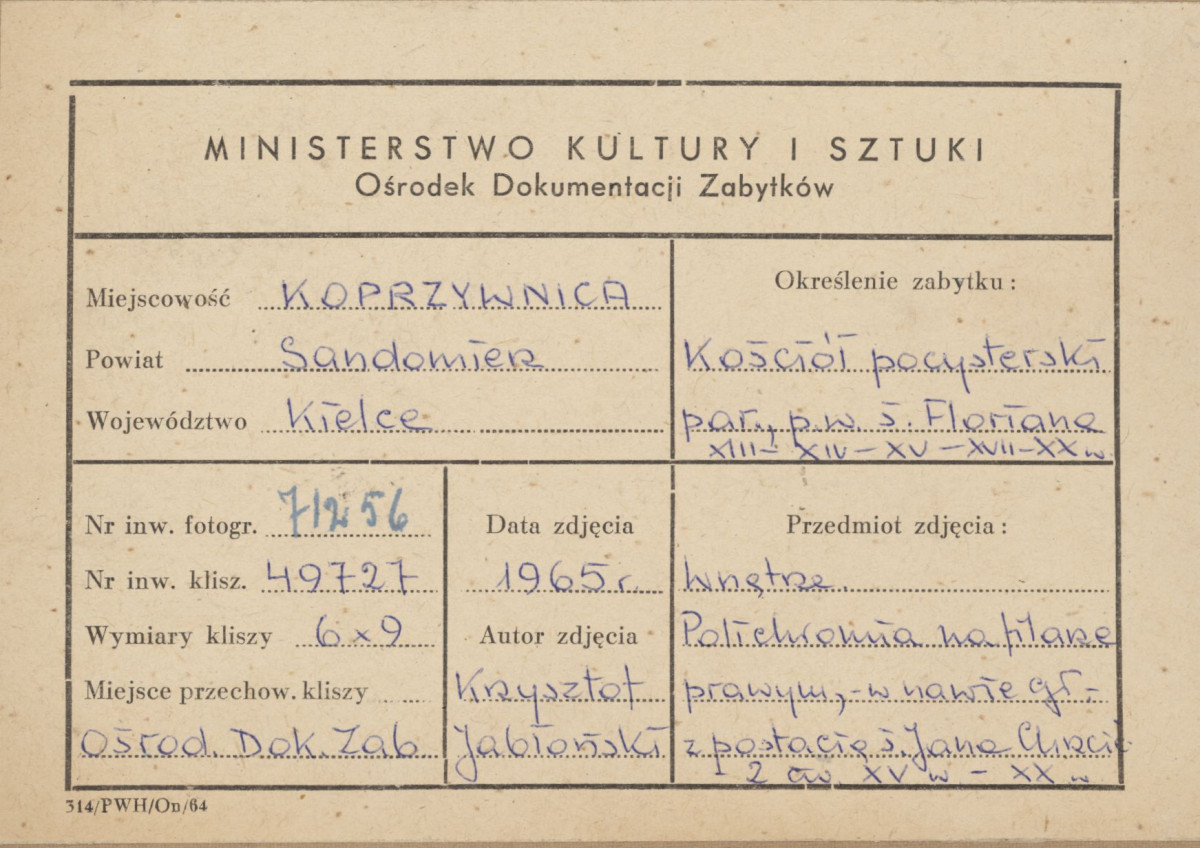 MINISTERSTWO KULTURY I SZTUKI
Ośrodek Dokumentacji Zabytków
Miejscowość KOPRZYWNICA
Powiat Sandomierz
Województwo Kielce
Określenie zabytku:
Kościół pocysterski
par., p.w. ś. Floriana
XIII – XIV – XV – XVII – XX w
Nr inw. fotogr. 71256
Nr inw. klisz. 49727
Wymiary kliszy 6x9
Miejsce przechow. kliszy
Ośrod. Dok. Zab
Data zdjęcia
1965 r.
Autor zdjęcia
Krzysztof
Jabłoński
Przedmiot zdjęcia:
Wnętrze.
Polichromia na filarze
prawym, - w nawie gł. -
z postacią ś. Jana Chrzcic
- 2 ćw. XV w - XX w
314/PWH/On/64